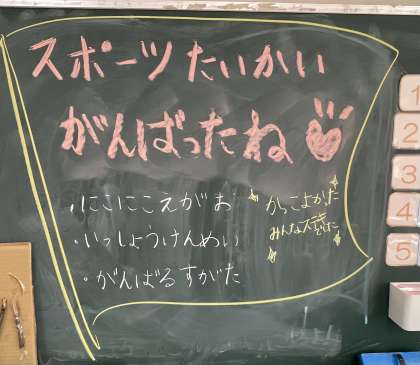 スポーツたいかい
がんばったね
・にこにこえがお
・いっしょうけんめい
・がんばるすがた
かっこよかった
みんな大
でした
1
2
3
4
5